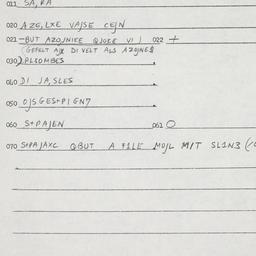 011 SA,RA
020 AZE,LXE VAJSE CEJN
021 —BUT AZOJNICE QJOKE VI | 022 +
(GEFELT AJX DI VELT ALS AZOJNES
030) PLCOMBES
040 DI JA,SLES
050 OJSGES+PIGN7
060 S+PAJEN 061 O
070 S+PAJAXC QBUT A FILE MOJL MIT SL1N3